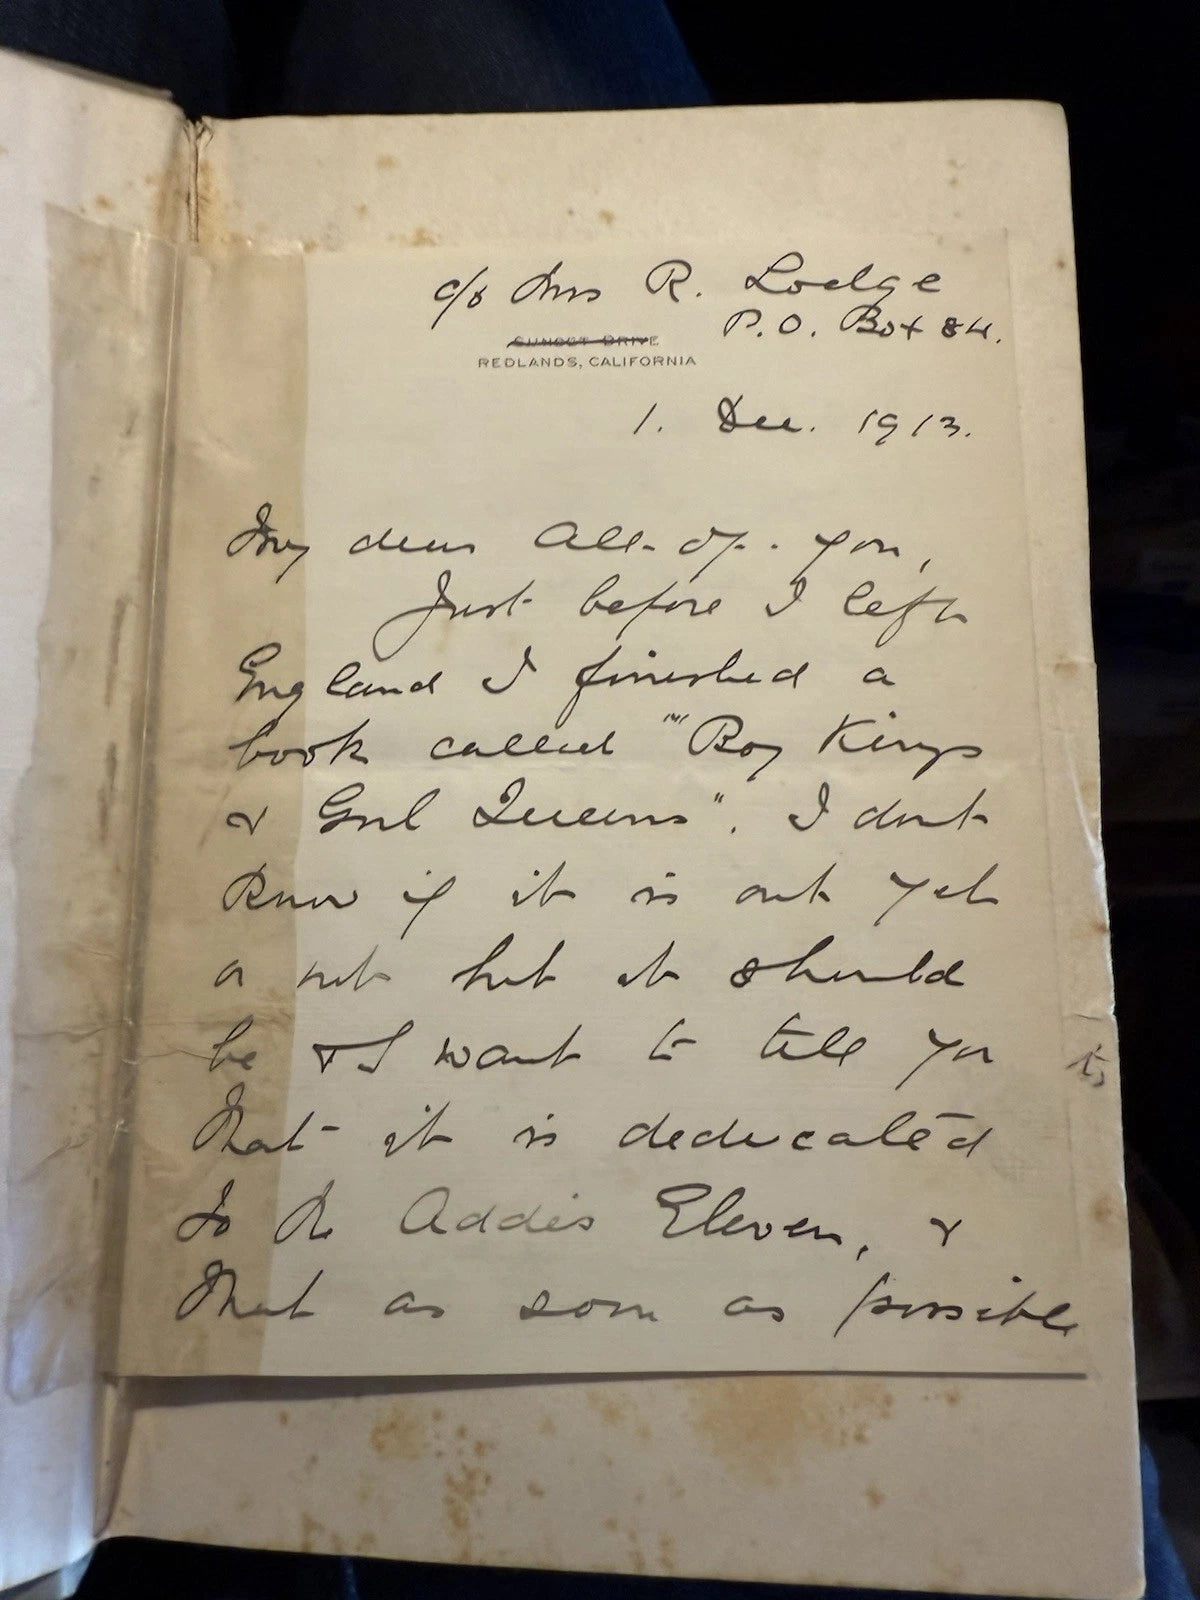 c/o Mrs R. Lodge
P.O. Box 84.
SUNSET DRIVE
REDLANDS, CALIFORNIA
1. Dec. 1913.
My dear All-of-you,
Just before I left
England I finished a
book called "Boy Kings
& Girl Queens". I dont
know if it is out yet
or not but it should
be & I want to tell you
that it is dedicated
to the Addis Eleven, &
that as soon as possible
to